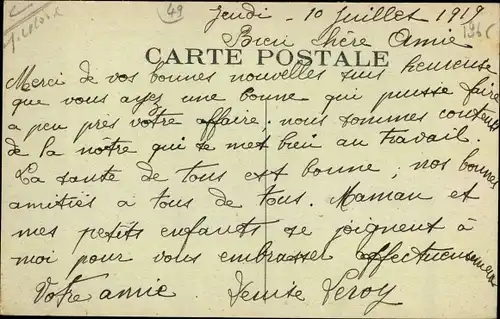 Jeudi - 10 Juillet 1919
49
Bien chère Amie
CARTE POSTALE
Merci de vos bonnes nouvelles suis heureuse
que vous ayez une bonne qui puisse faire
a peu près votre affaire; nous sommes contents
de la notre qui se met bien au travail.
La sante de tous est bonne; nos bonnes
amitiés à tous de tous. Maman et
mes petits enfants se joignent à
moi pour vous embrasser affectueusement
Votre amie Denise Leroy